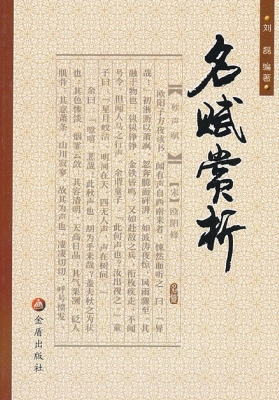 刘磊 编著
名赋赏析
秋声赋 【宋】欧阳修
欧阳子方夜读书,闻有声自西南来者,悚然而听之,曰:“异
哉!”初淅沥以萧飒,忽奔腾而砰湃,如波涛夜惊,风雨骤至。其
触于物也,鏦鏦铮铮,金铁皆鸣;又如赴敌之兵,衔枚疾走,不闻
号令,但闻人马之行声。余谓童子:“此何声也?汝出视之。”童
子曰:“星月皎洁,明河在天,四无人声,声在树间。”
余曰:“噫嘻,悲哉!此秋声也,胡为乎来哉?盖夫秋之为状
也:其色惨淡,烟霏云敛;其容清明,天高日晶;其气栗冽,砭人
肌骨;其意萧条,山川寂寥。故其为声也,凄凄切切,呼号愤发
金盾出版社